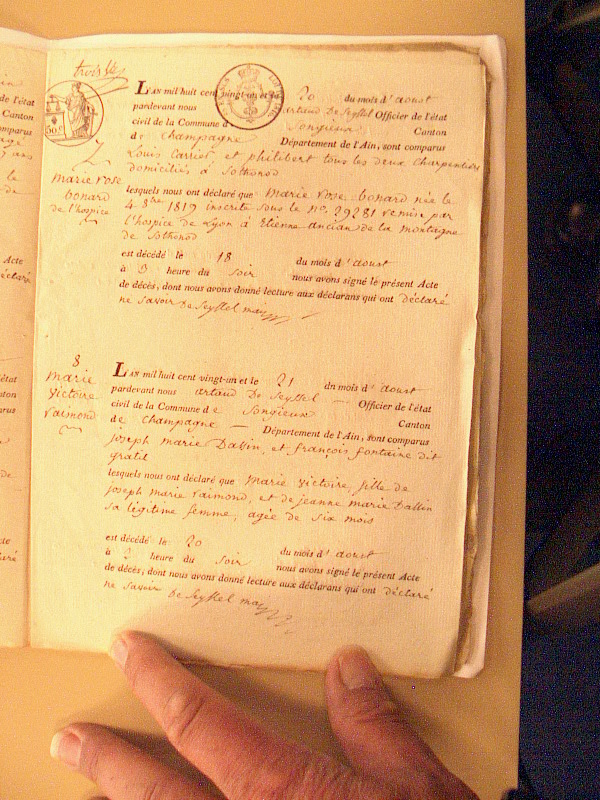 trois
50.c
7
marie rose
bonard
de l'hospice
L'AN mil huit cent vingt-un et le 20 du mois d'aoust
pardevant nous artaud De Seyssel Officier de l'état
civil de la Commune d Songieux Canton
de Champagne Département de l'Ain, sont comparus
Louis Carrier et philibert tous les deux Charpentiers
domiciliés à Sothonod
lesquels nous ont déclaré que Marie rose bonard née le
4 8bre 1819 inscrite sous le no. 29281 remise par
l'hospice de Lyon à Etienne ancian de la montagne
de Sothonod
est décédé le 18 du mois d'aoust
à 3 heure du soir nous avons signé le présent Acte
de décès, dont nous avons donné lecture aux déclarans qui ont déclaré
ne savoir De Seyssel may
8
marie
victoire
raimond
L'AN mil huit cent vingt-un et le 21 du mois d'aoust
pardevant nous artaud De Seyssel — Officier de l'état
civil de la Commune de Songieux Canton
de Champagne — Département de l'Ain, sont comparus
joseph marie Dallin, et françois fontaine dit
gratil
lesquels nous ont déclaré que Marie victoire, fille de
joseph marie raimond, et de jeanne marie Dallin
sa légitime femme, agée de six mois
est décédé le 20 du mois d'aoust
à 2 heure du soir nous avons signé le présent Acte
de décès, dont nous avons donné lecture aux déclarans qui ont déclaré
ne savoir De Seyssel may